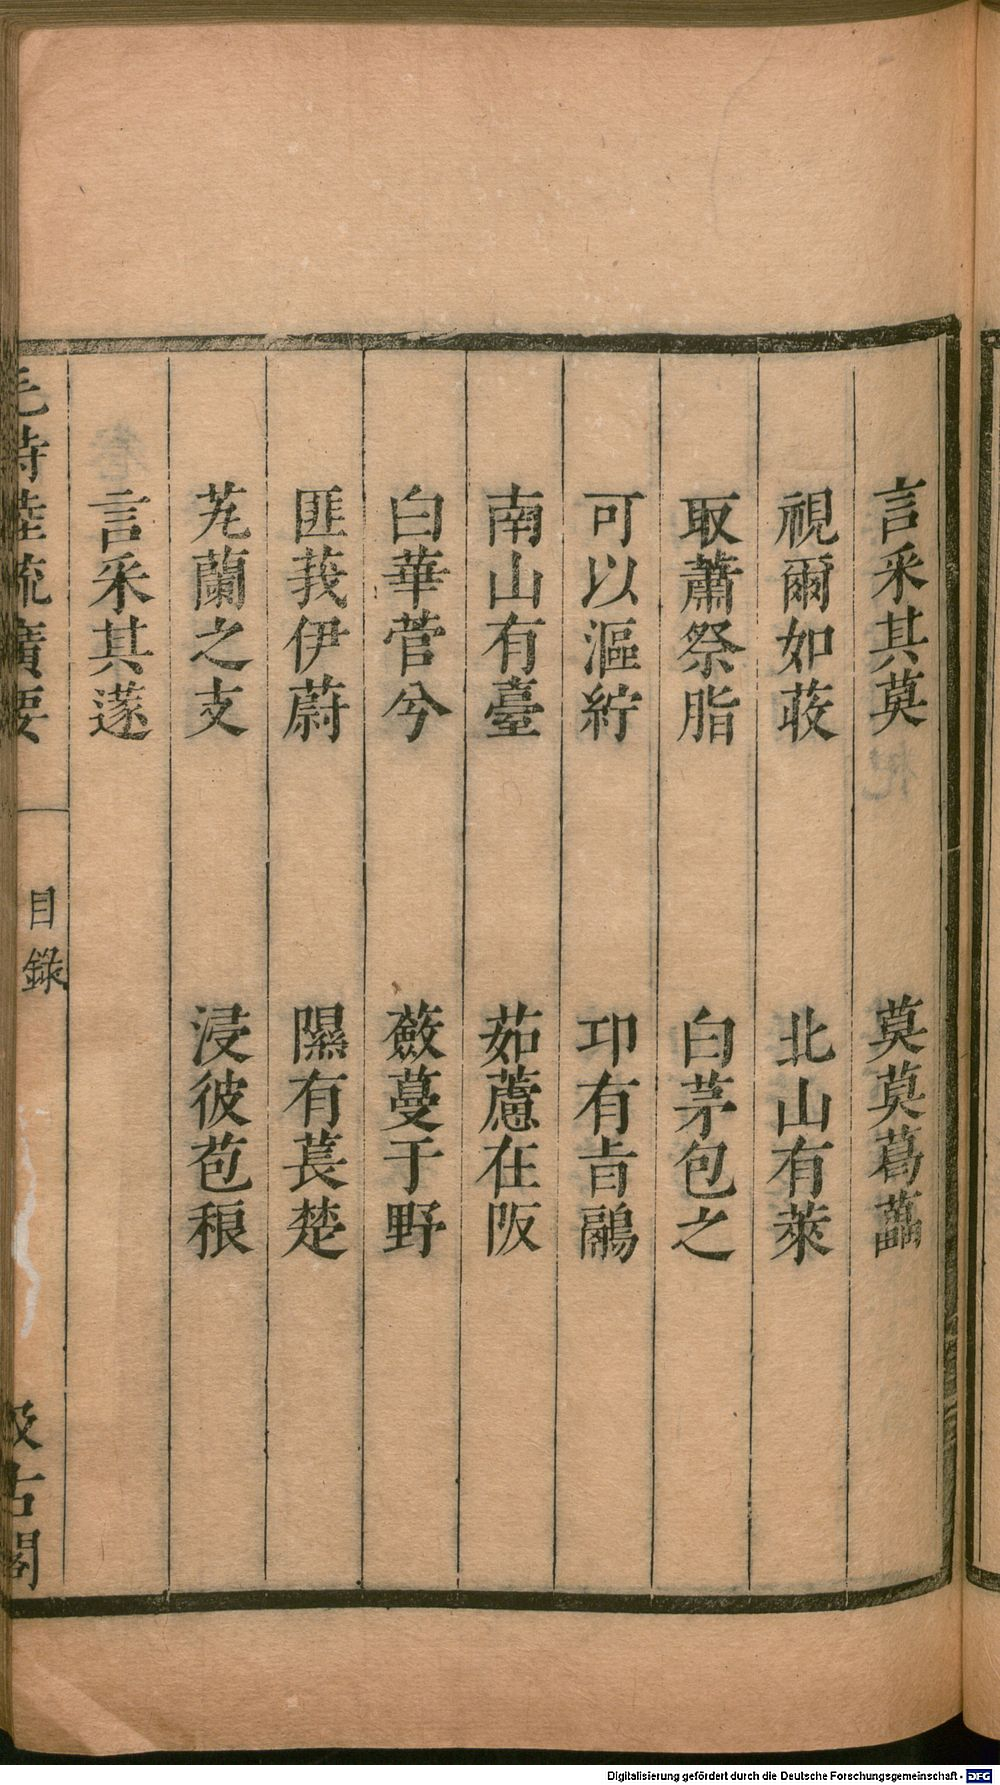 言采其莫　莫莫葛藟
視爾如荍　北山有萊
取蕭祭脂　白茅包之
可以漚紵　卭有旨鷊
南山有臺　茹藘在阪
白華菅兮　蘞蔓于野
匪莪伊蔚　隰有萇楚
芄蘭之支　浸彼苞稂
言采其蓫
毛詩陸疏廣要　目錄　汲古閣
Digitalisierung gefördert durch die Deutsche Forschungsgemeinschaft - DFG